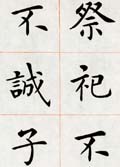 祭祀不
不誠子